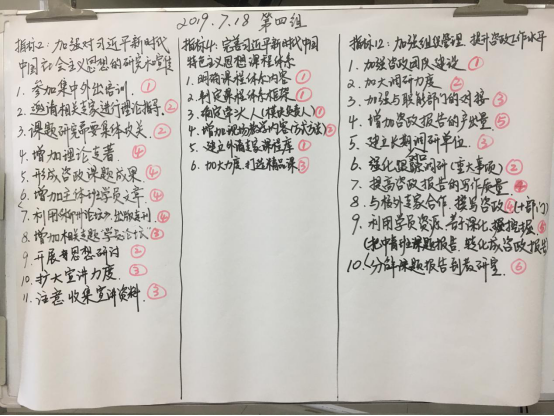 2019.7.18 第四组
指标2：加强对习近平新时代
中国社会主义思想的研究和宣传
1. 参加集中外出培训. ①
2. 邀请相关专家进行理论指导. ②
3. 课题研究需要集体攻关. ②
4. 增加理论专著 ②
5. 形成咨政课题成果 ②
6. 增加主体班学员文章 ②
8. 增加相关专题"学员论坛" ③
9. 开展思想研讨 ②
10. 扩大宣讲力度. ③
11. 注意收集宣讲资料. ③
指标4：完善习近平新时代中国
特色主义思想课程体系
1. 明确课程体系内容 ①
2. 制定课程体系框架 ①
3. 确定牵头人（模块负责人）①
4. 增加现场教学内容 ②
5. 建立外请专家课程库 ①
6. 加大力度打造精品课 ③
指标12：加强组织管理 提升咨政工作水平
1. 加强咨政团队建设 ①
2. 加大调研力度 ②
3. 加强与职能部门的对接 ③
4. 增加咨政报告的产出量 ⑤
5. 建立长期调研单位 ③
6. 强化跟踪调研（重大专项）②
7. 提高咨政报告的写作质量
8. 与校外专家合作，撰写咨政 ④
9. 利用学员资源，若干深化，
（把中青班课题报告，转化成咨政报告
10. 分解课题报告到教研室 ⑥